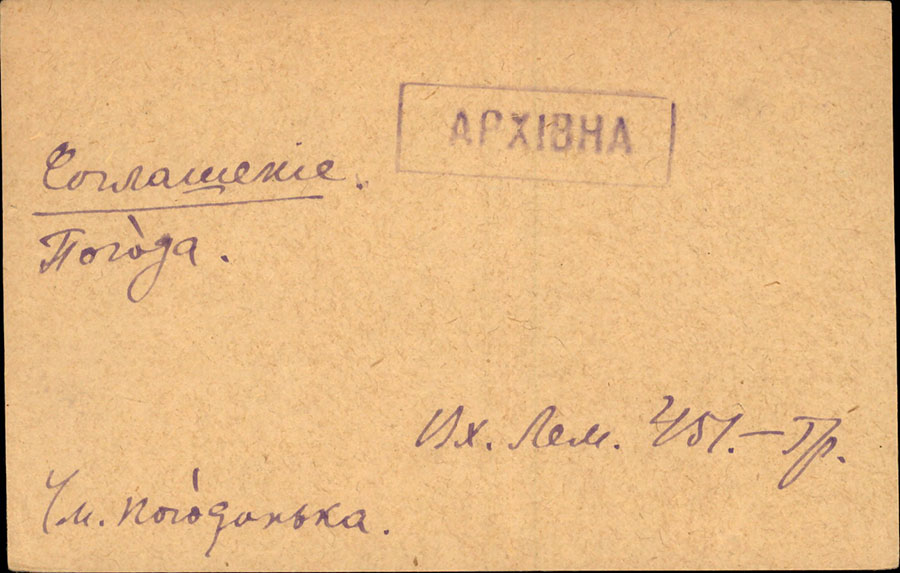 АРХІВНА
Соглашеніе.
Пого̀да.
Вх. Лем. 451.—Гр.
Ум. пого̀донька.